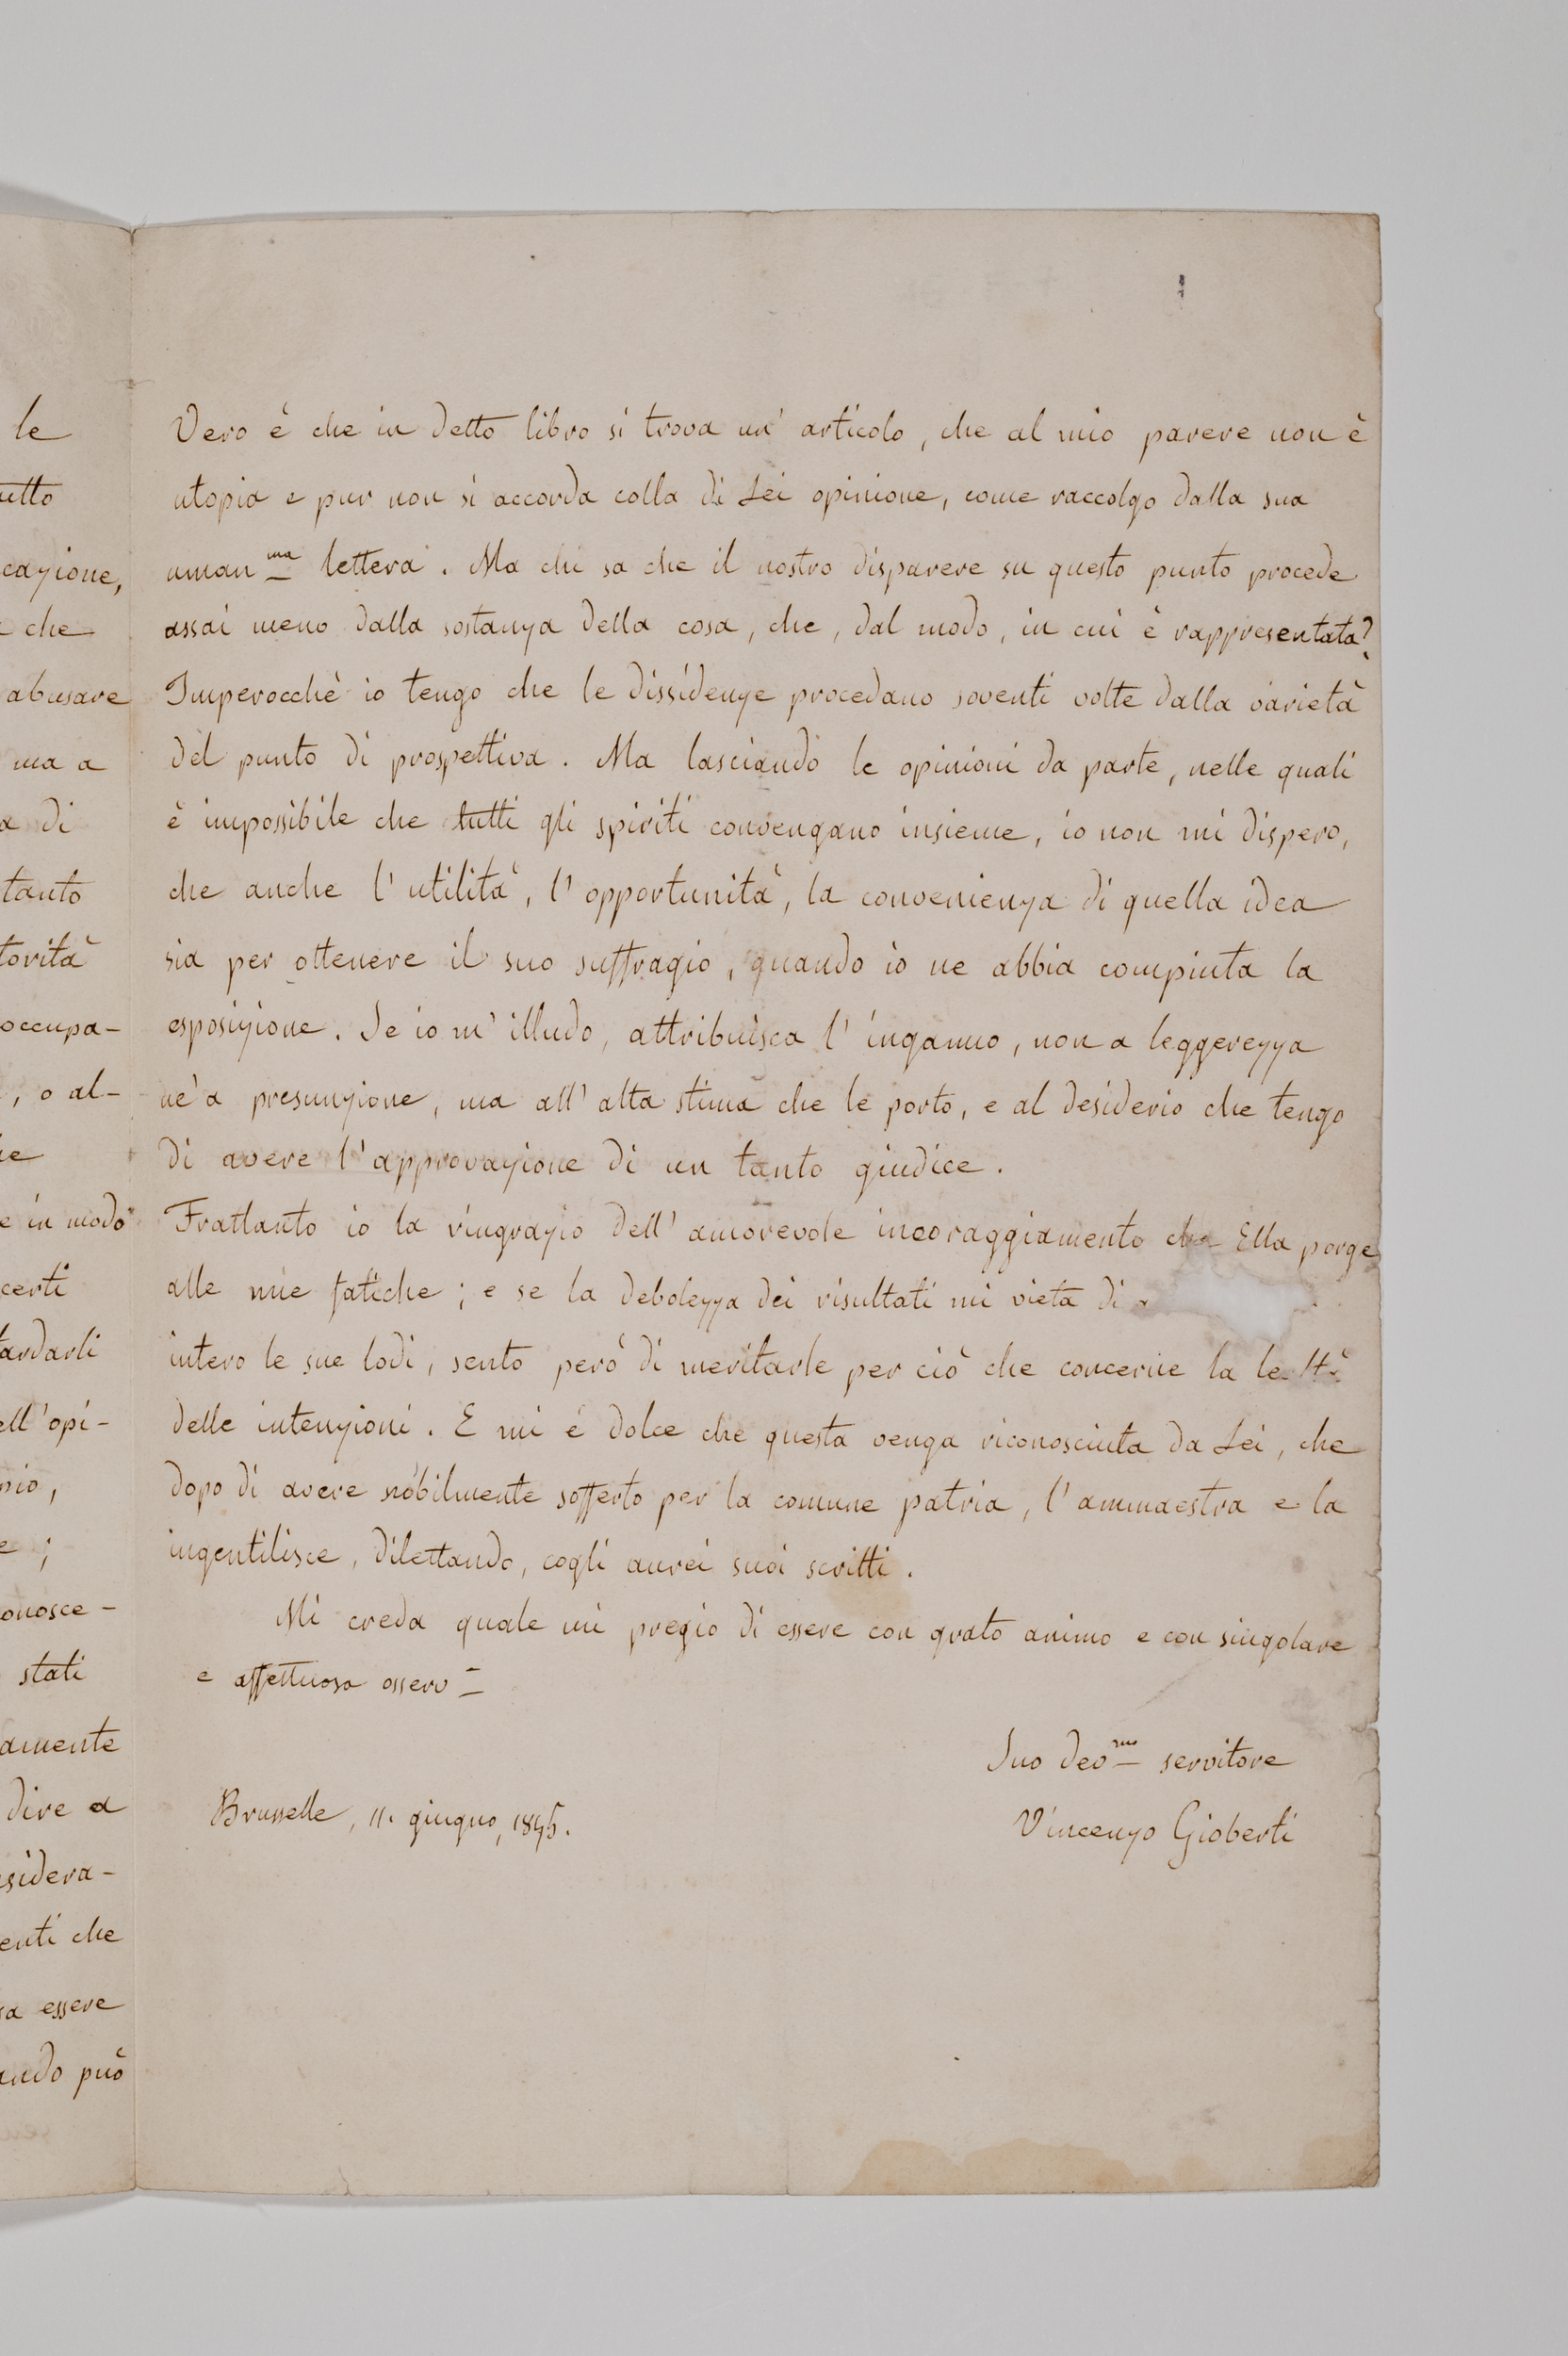 le
utto
cazione,
che
abusare
ma a
a di
tanto
torità
occupa-
, o al-
ie
e in modo
certi
tardarli
ell'opi-
nio,
e ;
onosce-
stati
amente
dire a
esidera-
enti che
sa essere
ando può
Vero è che in detto libro si trova un' articolo, che al mio parere non è
utopia e pur non si accorda colla di Lei opinione, come raccolgo dalla sua
uman.ma lettera. Ma chi sa che il nostro disparere su questo punto procede
assai meno dalla sostanza della cosa, che, dal modo, in cui è rappresentata?
Imperocchè io tengo che le dissidenze procedano soventi volte dalla varietà
del punto di prospettiva. Ma lasciando le opinioni da parte, nelle quali
è impossibile che tutti gli spiriti convengano insieme, io non mi dispero,
che anche l'utilità, l'opportunità, la convenienza di quella idea
sia per ottenere il suo suffragio, quando io ne abbia compiuta la
esposizione. Se io m'illudo, attribuisca l'inganno, non a leggerezza
nè a presunzione, ma all'alta stima che le porto, e al desiderio che tengo
di avere l'approvazione di un tanto giudice.
Frattanto io la ringrazio dell'amorevole incoraggiamento che Ella porge
alle mie fatiche; e se la debolezza dei risultati mi vieta di
intero le sue lodi, sento però di meritarle per ciò che concerne la
delle intenzioni. E mi è dolce che questa venga riconosciuta da Lei, che
dopo di avere nobilmente sofferto per la comune patria, l'ammaestra e la
ingentilisce, dilettando, cogli aurei suoi scritti.
Mi creda quale mi pregio di essere con grato animo e con singolare
e affettuosa osserv.
Suo dev.mo servitore
Brusselle, 11. giugno, 1845.
Vincenzo Gioberti